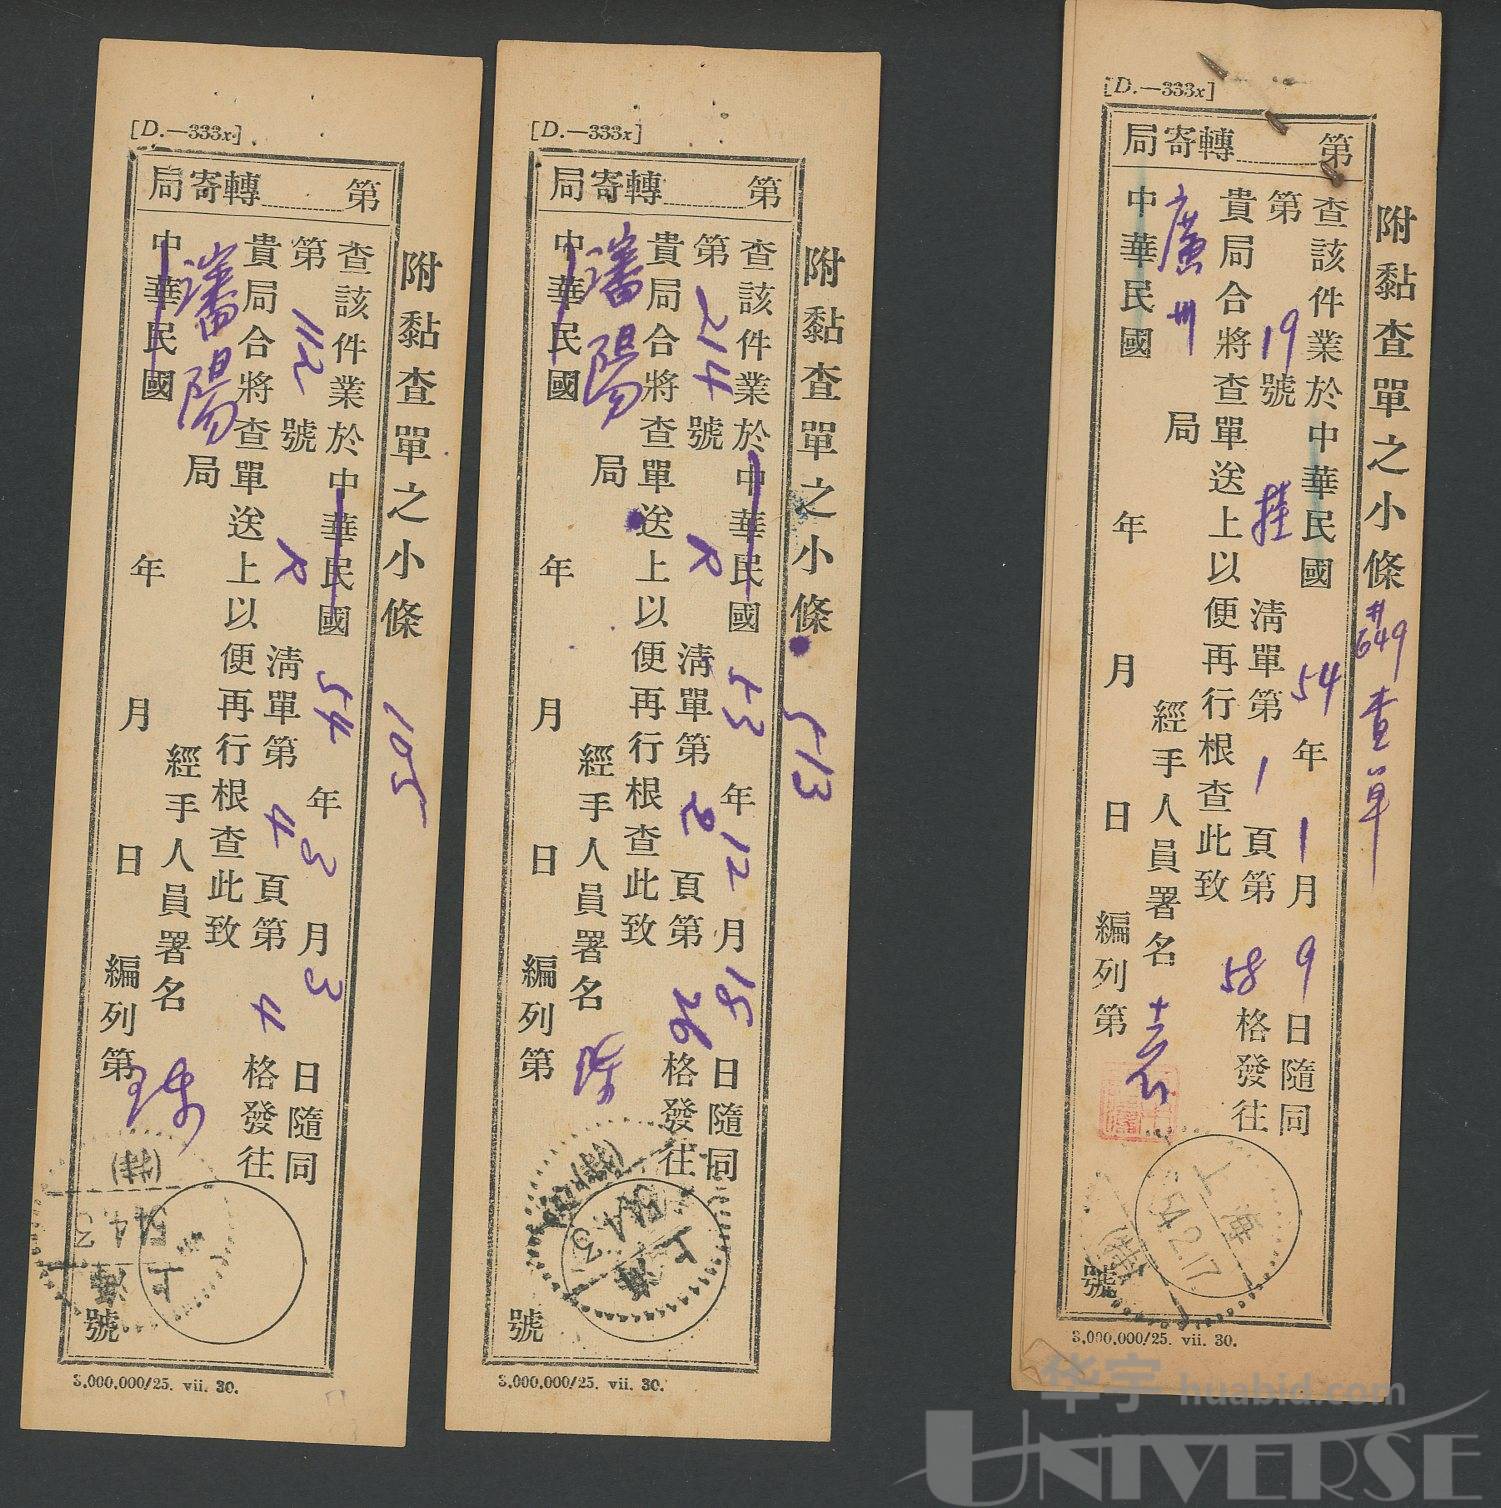 [D.—333x]
第 轉寄局
附黏查單之小條 105
查該件業於中華民國 54 年 3 月 3 日隨同
第 112 號 R 清單第 4 頁第 4 格發往
貴局合將查單送上以便再行根查此致
瀋陽 局
經手人員署名
中華民國 年 月 日 編列第 號
上海
54.4.3
3,000,000/25. vii. 30.
[D.—333x]
第 轉寄局
附黏查單之小條 513
查該件業於中華民國 53 年 12 月 18 日隨同
第 214 號 R 清單第 2 頁第 26 格發往
貴局合將查單送上以便再行根查此致
瀋陽 局
經手人員署名
中華民國 年 月 日 編列第 號
上海
54.4.3
3,000,000/25. vii. 30.
[D.—333x]
第 轉寄局
附黏查單之小條 #649 查單
查該件業於中華民國 54 年 1 月 9 日隨同
第 19 號 挂 清單第 1 頁第 58 格發往
貴局合將查單送上以便再行根查此致
廣州 局
經手人員署名
中華民國 年 月 日 編列第 號
上海
54.2.17
3,000,000/25. vii. 30.
华宇 huabid.com
UNIVERSE